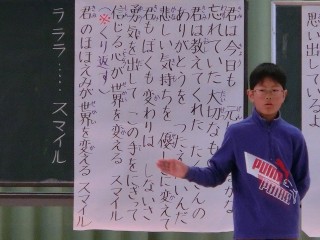 君は今日も 元気かな
忘れていた 大切なもの
君は教えてくれた たくさんの
ありがとうを つたえたいんだ
悲しい気持ちを 優しさに変えて
君もぼくも変わりは しないさ
勇気を出して この手をにぎって
信じる心が世界を変える スマイル
(※くり返す)
君のほほえみが世界を変える スマイル
ラララ..... スマイル
PUMA
PUMA